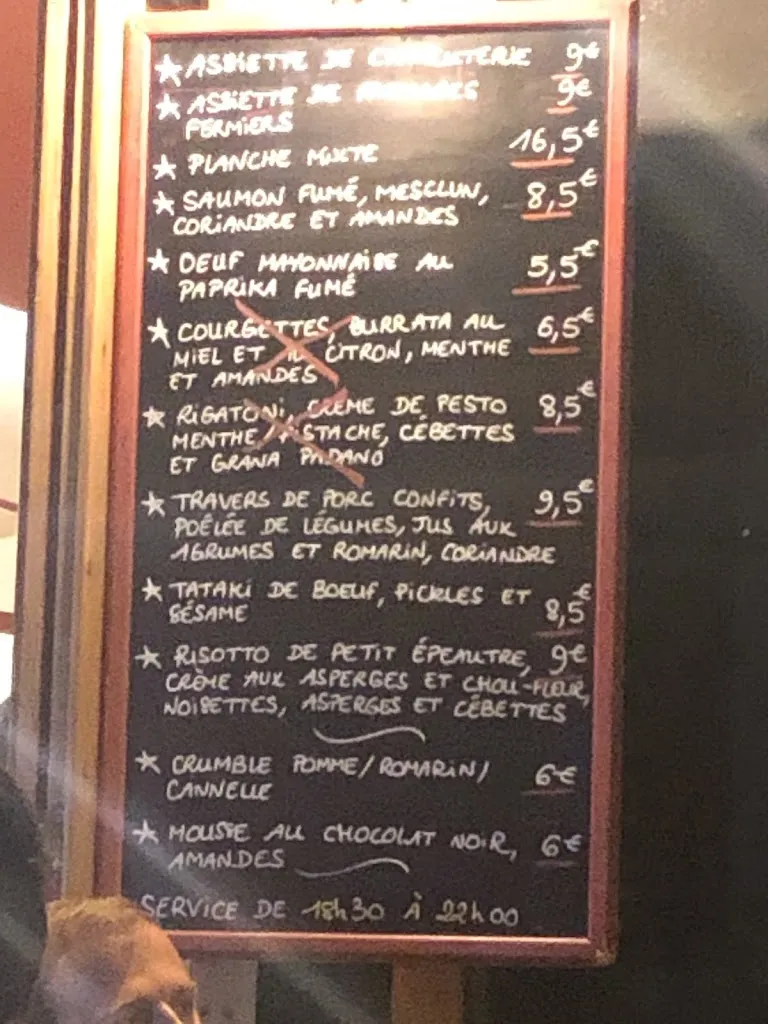 ★ ASSIETTE DE CHARCUTERIE 9€
★ ASSIETTE DE FROMAGES 9€
FERMIERS
★ PLANCHE MIXTE 16,5€
★ SAUMON FUMÉ, MESCLUN, 8,5€
CORIANDRE ET AMANDES
★ OEUF MAYONNAISE AU 5,5€
PAPRIKA FUMÉ
★ COURGETTES, BURRATA AU 6,5€
MIEL ET AU CITRON, MENTHE
ET AMANDES
★ RIGATONI, CRÈME DE PESTO 8,5€
MENTHE/PISTACHE, CÉBETTES
ET GRANA PADANO
★ TRAVERS DE PORC CONFITS, 9,5€
POÊLÉE DE LÉGUMES, JUS AUX
AGRUMES ET ROMARIN, CORIANDRE
★ TATAKI DE BOEUF, PICKLES ET 8,5€
SÉSAME
★ RISOTTO DE PETIT ÉPEAUTRE, 9€
CRÈME AUX ASPERGES ET CHOU-FLEUR,
NOISETTES, ASPERGES ET CÉBETTES
★ CRUMBLE POMME/ROMARIN/ 6€
CANNELLE
★ MOUSSE AU CHOCOLAT NOIR, 6€
AMANDES
SERVICE DE 18h30 À 22h00